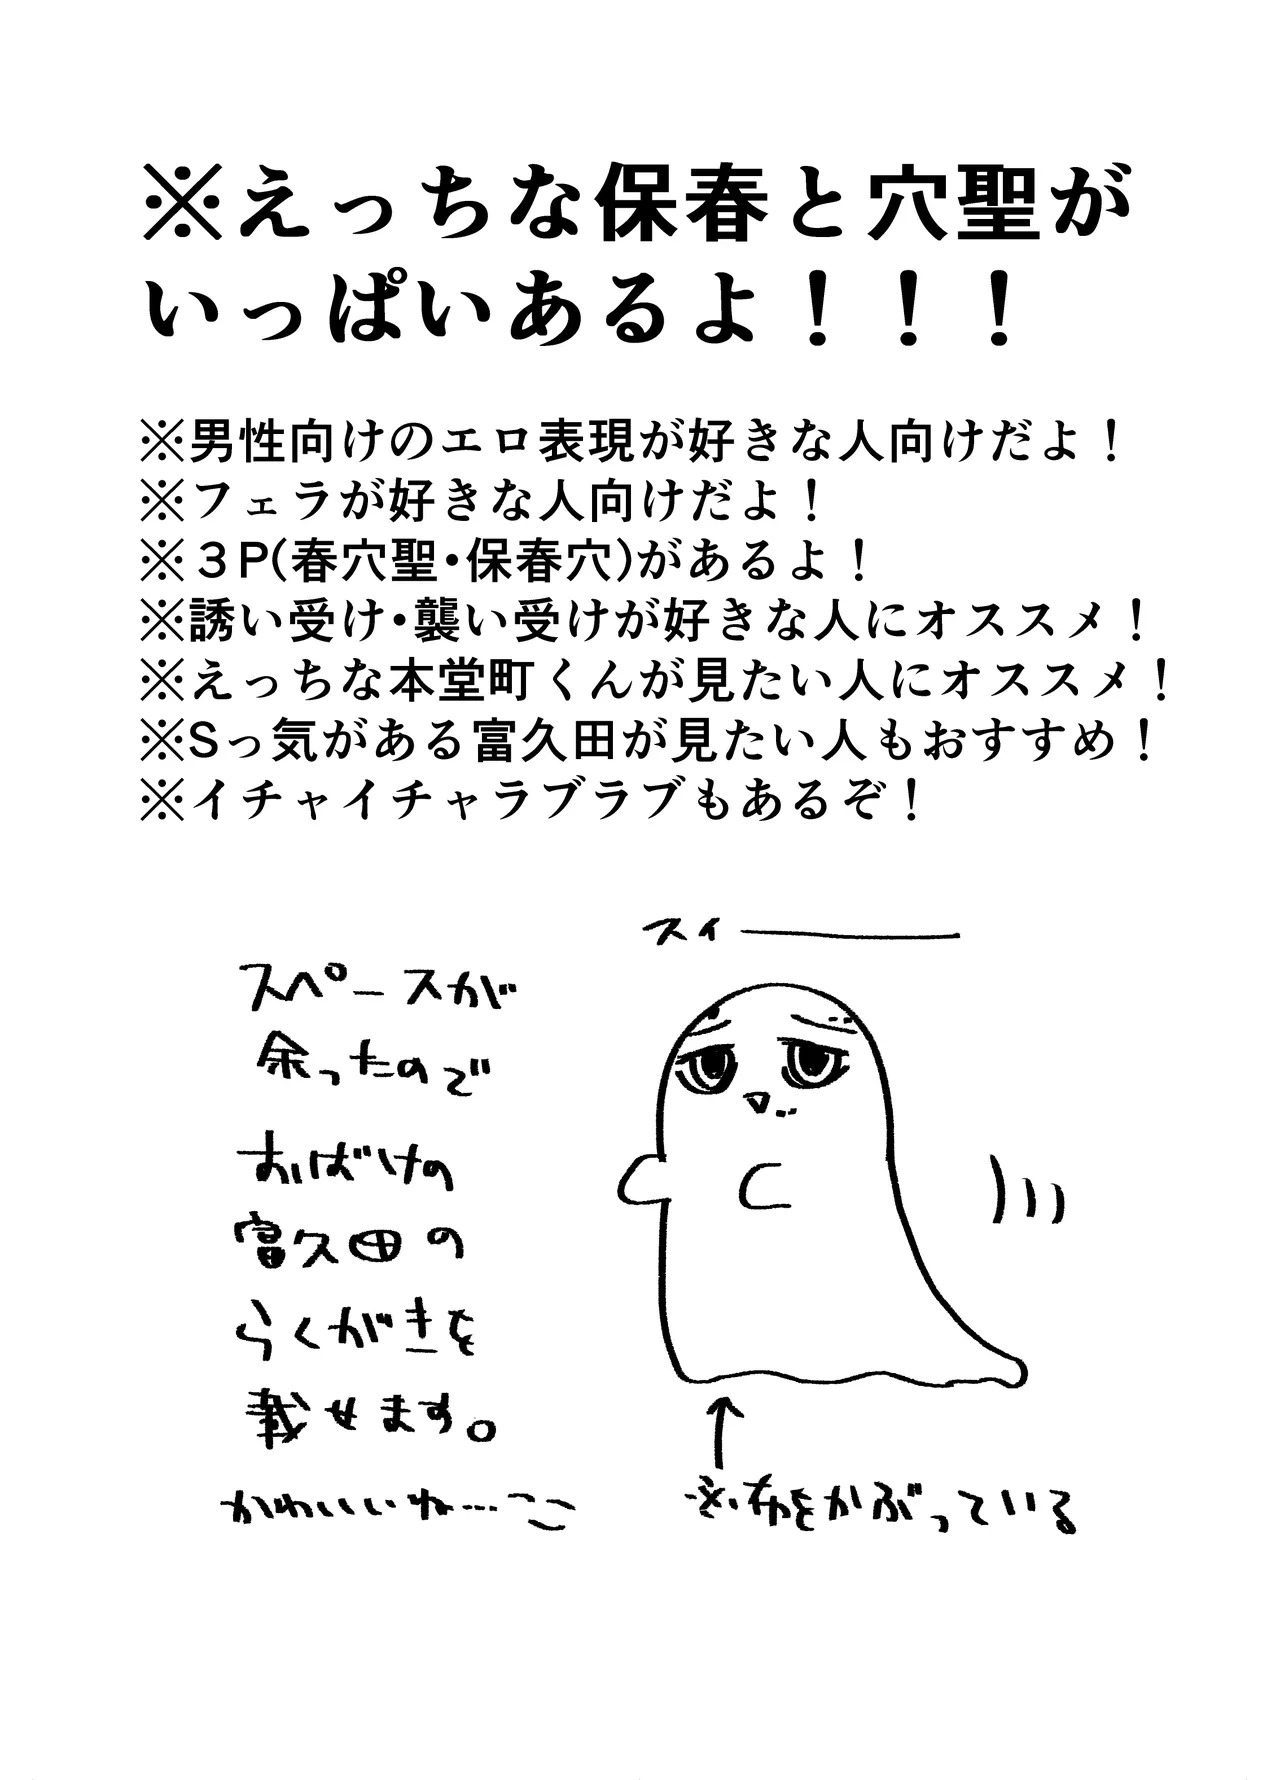 ※えっちな保春と穴聖が
いっぱいあるよ！！！
※男性向けのエロ表現が好きな人向けだよ！
※フェラが好きな人向けだよ！
※３P(春穴聖・保春穴)があるよ！
※誘い受け・襲い受けが好きな人にオススメ！
※えっちな本堂町くんが見たい人にオススメ！
※Sっ気がある富久田が見たい人もおすすめ！
※イチャイチャラブラブもあるぞ！
スイ―――
スペースが
余ったので
おばけの
富久田の
らくがきを
載せます。
かわいいね…
↑
※布をかぶっている